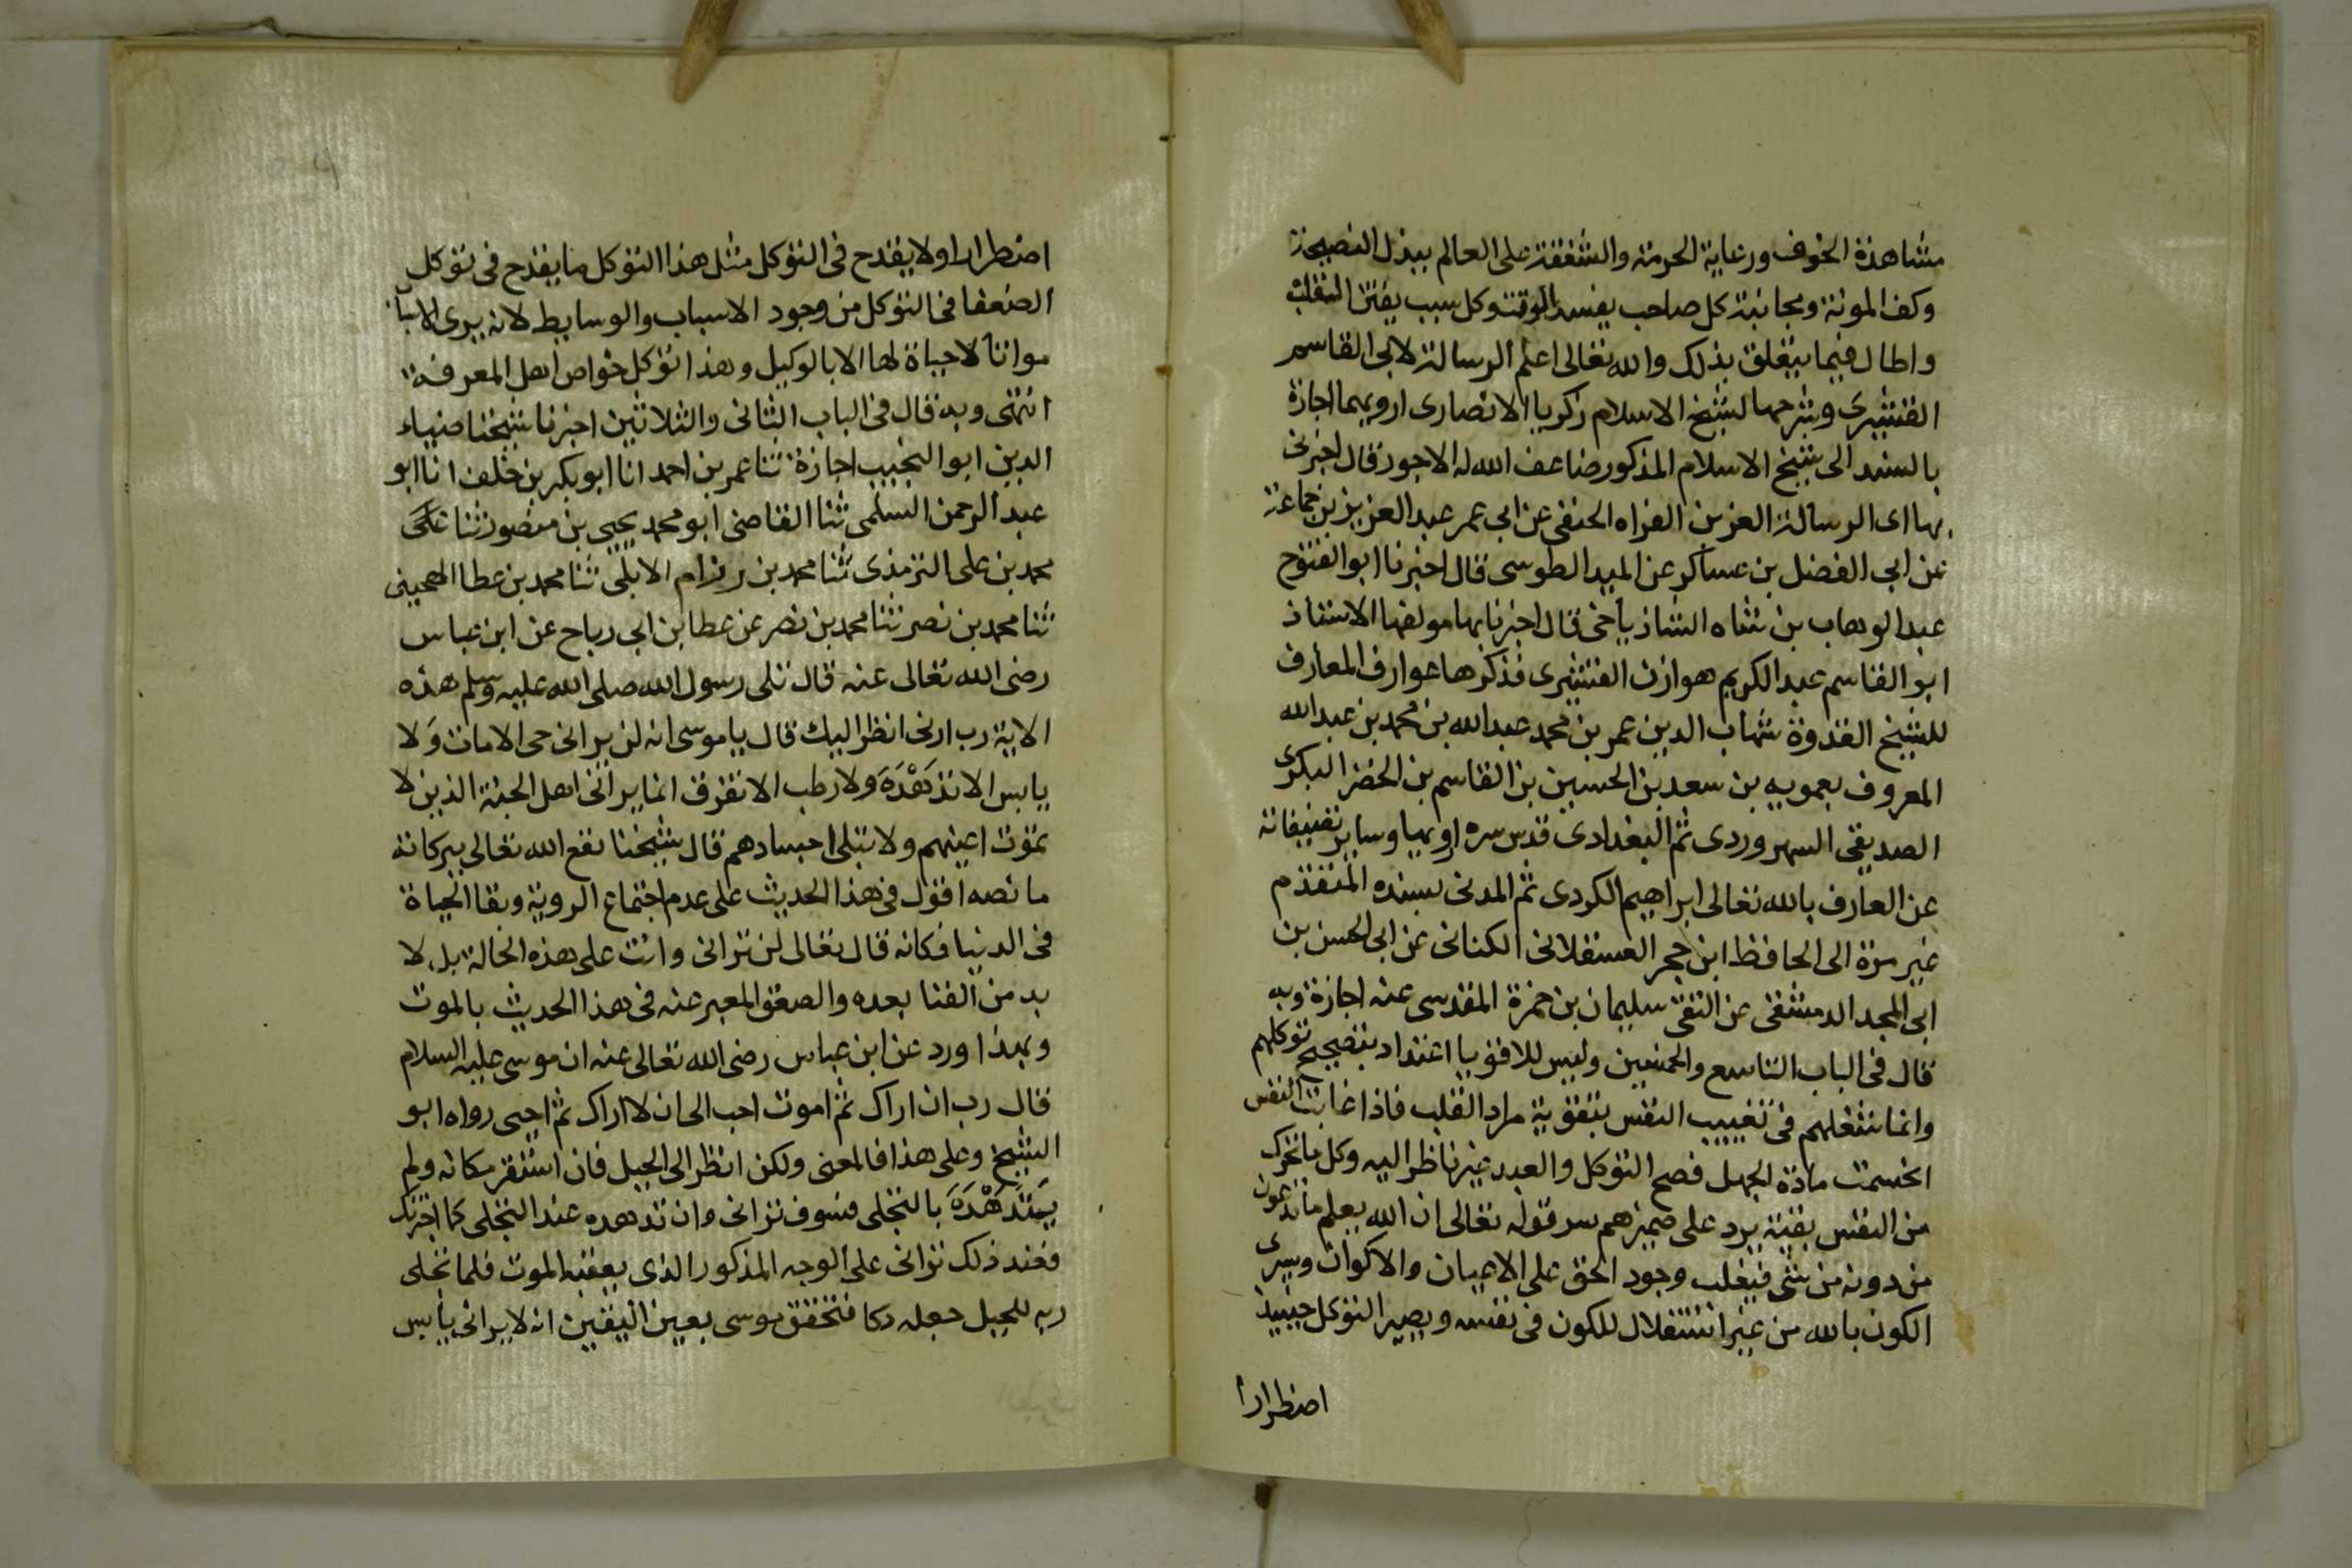 مشاهدة الخوف ورعاية الحرمة والشفقة على العالم ببذل النصيحة
وكف المونة ومجانبة كل صاحب يفسد الوقت وكل سبب يفتن القلب
واطال فيما يتعلق بذلك والله تعالى اعلم الرسالة لابى القاسم
القشيرى وشرحها لشيخ الاسلام زكريا الانصارى ارويهما اجازة
بالسند الى شيخ الاسلام المذكور ضاعف الله له الاجور قال اخبرنى
بها اى الرسالة العز بن الفراه الحنفى عن ابى عمر عبد العزيز بن جماعة
عن ابى الفضل بن عساكر عن الميد الطوسى قال اخبرنا ابو الفتوح
عبد الوهاب بن شاه الشاذياخى قال اخبرنا بها مولفها الاستاذ
ابو القاسم عبد الكريم هوازن القشيرى فذكرها عوارف المعارف
للشيخ القدوة شهاب الدين عمر بن محمد عبد الله بن محمد بن عبد الله
المعروف بعمويه بن سعد بن الحسين بن القاسم بن الخضر البكرى
الصديقى السهروردى ثم البغدادى قدس سره اويها وساير تصنيفاته
عن العارف بالله تعالى ابراهيم الكردى ثم المدنى بسنده المتقدم
غير مرة الى الحافظ ابن حجر العسقلانى الكنانى عن ابى الحسن بن
ابى المجد الدمشقى عن التقى سليمان بن حمزة المقدسى عنه اجازة وبه
قال فى الباب التاسع والخمسين وليس للاقويا اعتداد بتصحيح توكلهم
وانما شغلهم فى تغييب النفس بتقوية مراد القلب فاذا غابت النفس
انحسمت مادة الجهل فصح التوكل والعبد غير ناظر اليه وكل ما تحرك
من النفس بقية يرد على ضميرهم سر قوله تعالى ان الله يعلم ما تدعون
من دونه من شى فيغلب وجود الحق على الاعيان والاكوان ويرى
الكون بالله من غير استقلال للكون فى نفسه ويصير التوكل حينيذ
اضطرارا
اضطرارا ولا يقدح فى التوكل مثل هذا التوكل ما يقدح فى توكل
الضعفا فى التوكل من وجود الاسباب والوسايط لانه يرى الاسباب
مواتا لا حياة لها الا بالوكيل وهذا توكل خواص اهل المعرفة
انتهى وبه قال فى الباب الثانى والثلاثين اخبرنا شيخنا ضياء
الدين ابو النجيب اجازة ثنا عمر بن احمد انا ابو بكر بن خلف انا ابو
عبد الرحمن السلمى ثنا القاضى ابو محمد يحيى بن منصور ثنا على
محمد بن على الترمذى ثنا محمد بن رزام الابلى ثنا محمد بن عطا الهجينى
ثنا محمد بن نصر ثنا محمد بن نصر عن عطا بن ابى رباح عن ابن عباس
رضى الله تعالى عنه قال تلى رسول الله صلى الله عليه وسلم هذه
الاية رب ارنى انظر اليك قال يا موسى انه لن يرانى حى الا مات وَلا
يابس الا تدَهْدَهَ ولا رطب الا تفرق انما يرانى اهل الجنة الذين لا
تموت اعينهم ولا تبلى اجسادهم قال شيخنا نفع الله تعالى ببركاته
ما نصه اقول فى هذا الحديث على عدم اجتماع الروية وبقا الحياة
فى الدنيا فكانه قال تعالى لن ترانى وانت على هذه الحالة بل لا
بد من الفنا بعده والصعق المعبر عنه فى هذا الحديث بالموت
وبهذا ورد عن ابن عباس رضى الله تعالى عنه ان موسى عليه السلام
قال رب ان اراك ثم اموت احب الى ان لا اراك ثم احيى رواه ابو
الشيخ وعلى هذا فالمعنى ولكن انظر الى الجبل فان استقر مكانه ولم
يَتَدَهْدَهَ بالتجلى فسوف ترانى وان تدهده عند التجلى كما اخبرتك
فعند ذلك ترانى على الوجه المذكور الذى يعقبه الموت فلما تجلى
ربه للجبل جعله دكا فتحقق موسى بعين اليقين انه لا يرانى يابس